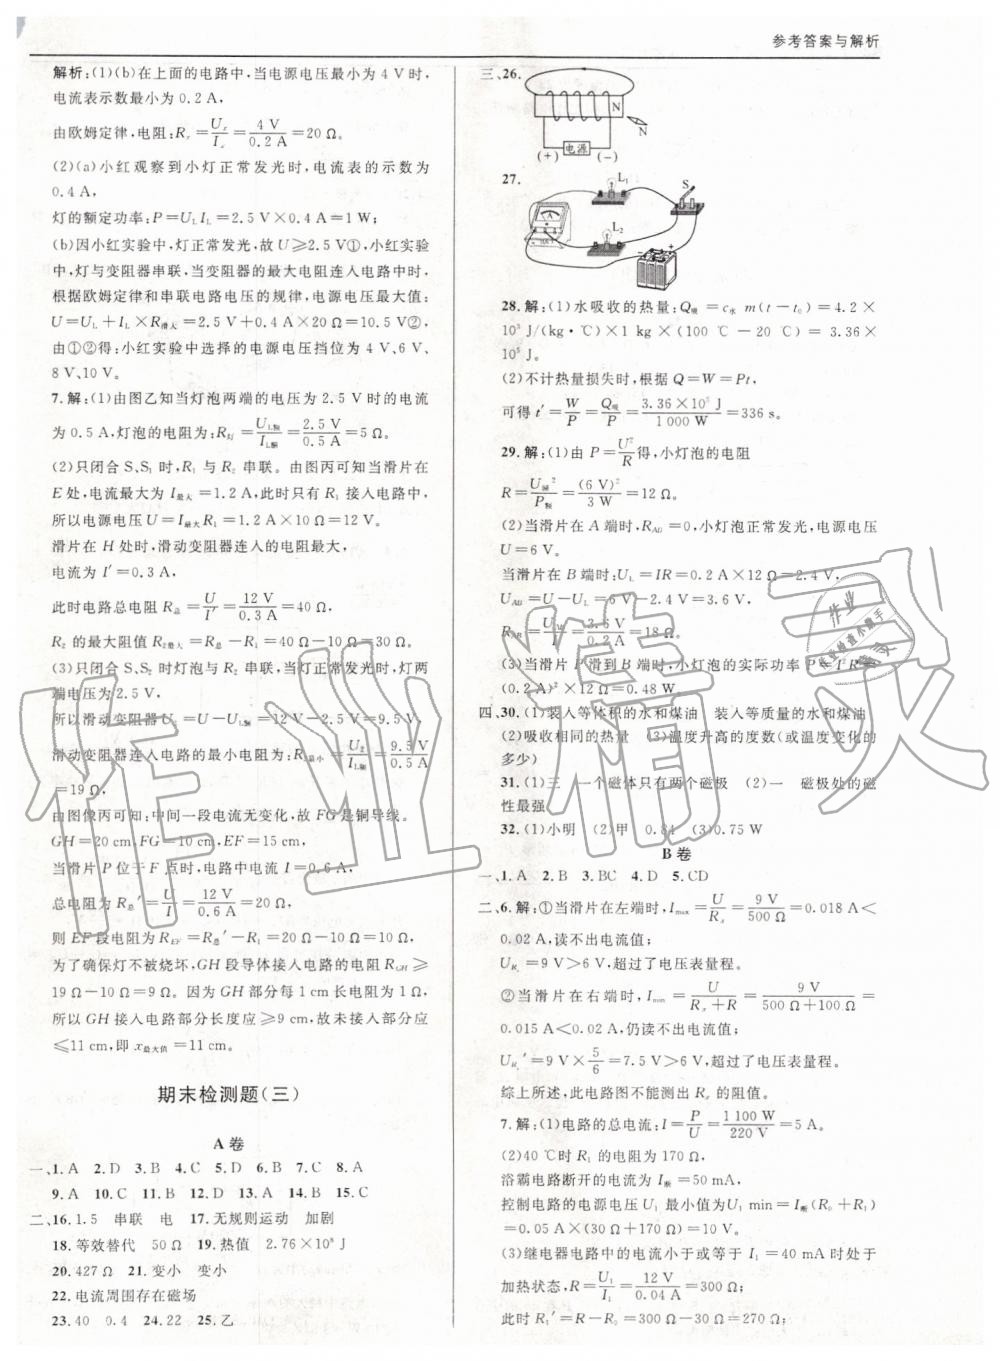 参考答案与解析
解析:(1)(b)在上面的电路中,当电源电压最小为 4 V时,
电流表示数最小为 0.2 A,
由欧姆定律,电阻:Rₓ=Uₓ/Iₓ=4 V/0.2 A=20 Ω。
(2)(a)小红观察到小灯正常发光时,电流表的示数为
0.4 A,
灯的额定功率:P=U_L I_L=2.5 V×0.4 A=1 W;
(b)因小红实验中,灯正常发光,故 U≥2.5 V①,小红实验
中,灯与变阻器串联,当变阻器的最大电阻连入电路中时,
根据欧姆定律和串联电路电压的规律,电源电压最大值:
U=U_L+I_L×R滑大=2.5 V+0.4 A×20 Ω=10.5 V②;
由①②得:小红实验中选择的电源电压挡位为 4 V、6 V、
8 V、10 V。
7.解:(1)由图乙知当灯泡两端的电压为 2.5 V时的电流
为 0.5 A,灯泡的电阻为:R灯=U_L额/I_L额=2.5 V/0.5 A=5 Ω。
(2)只闭合 S、S₁ 时,R₁ 与 R₂ 串联。由图丙可知当滑片在
E 处,电流最大为 I最大=1.2 A,此时只有 R₁ 接入电路中,
所以电源电压 U=I最大R₁=1.2 A×10 Ω=12 V。
滑片在 H 处时,滑动变阻器连入的电阻最大,
电流为 I′=0.3 A,
此时电路总电阻 R总=U/I′=12 V/0.3 A=40 Ω,
R₂ 的最大阻值 R₂最大=R总-R₁=40 Ω-10 Ω=30 Ω。
(3)只闭合 S、S₂ 时灯泡与 R₂ 串联,当灯正常发光时,灯两
端电压为 2.5 V,
所以滑动变阻器 U₂=U-U_L额=12 V-2.5 V=9.5 V,
滑动变阻器连入电路的最小电阻为:R最小=U₂/I_L额=9.5 V/0.5 A
=19 Ω。
由图像丙可知:中间一段电流无变化,故 FG 是铜导线。
GH=20 cm,FG=10 cm,EF=15 cm,
当滑片 P 位于 F 点时,电路中电流 I=0.6 A,
总电阻为 R总′=U/I=12 V/0.6 A=20 Ω,
则 EF 段电阻为 R_EF=R总′-R₁=20 Ω-10 Ω=10 Ω,
为了确保灯不被烧坏,GH 段导体接入电路的电阻 R_GH≥
19 Ω-10 Ω=9 Ω。因为 GH 部分每 1 cm 长电阻为 1 Ω,
所以 GH 接入电路部分长度应≥9 cm,故未接入部分应
≤11 cm,即 x最大值=11 cm。
期末检测题(三)
A 卷
一、1.A 2.D 3.B 4.C 5.D 6.B 7.C 8.A
9.A 10.C 11.B 12.D 13.A 14.B 15.C
二、16.1.5 串联 电 17.无规则运动 加剧
18.等效替代 50 Ω 19.热值 2.76×10⁸ J
20.427 Ω 21.变小 变小
22.电流周围存在磁场
23.40 0.4 24.22 25.乙
三、26.
N
N
(+) 电源 (-)
27.
L₁
S
A
L₂
28.解:(1)水吸收的热量:Q吸=c水 m(t-t₀)=4.2×
10³ J/(kg·℃)×1 kg×(100 ℃-20 ℃)=3.36×
10⁵ J。
(2)不计热量损失时,根据 Q=W=Pt,
可得 t′=W/P=Q吸/P=3.36×10⁵ J/1 000 W=336 s。
29.解:(1)由 P=U²/R得,小灯泡的电阻
R=U额²/P额=(6 V)²/3 W=12 Ω。
(2)当滑片在 A 端时,R_AB=0,小灯泡正常发光,电源电压
U=6 V。
当滑片在 B 端时:U_L=IR=0.2 A×12 Ω=2.4 V,
U_AB=U-U_L=6 V-2.4 V=3.6 V,
R_AB=U_AB/I=3.6 V/0.2 A=18 Ω。
(3)当滑片 P 滑到 B 端时,小灯泡的实际功率 P=I²R=
(0.2 A)²×12 Ω=0.48 W。
四、30.(1)装入等体积的水和煤油 装入等质量的水和煤油
(2)吸收相同的热量 (3)温度升高的度数(或温度变化的
多少)
31.(1)三 一个磁体只有两个磁极 (2)一 磁极处的磁
性最强
32.(1)小明 (2)甲 0.84 (3)0.75 W
B 卷
一、1.A 2.B 3.BC 4.D 5.CD
二、6.解:①当滑片在左端时,Imax=U/Rₓ=9 V/500 Ω=0.018 A<
0.02 A,读不出电流值;
U_Rₓ=9 V>6 V,超过了电压表量程。
②当滑片在右端时,Imin=U/(Rₓ+R)=9 V/(500 Ω+100 Ω)=
0.015 A<0.02 A,仍读不出电流值;
U_Rₓ′=9 V×5/6=7.5 V>6 V,超过了电压表量程。
综上所述,此电路图不能测出 Rₓ 的阻值。
7.解:(1)电路的总电流:I=P/U=1 100 W/220 V=5 A。
(2)40 ℃时 R₁ 的电阻为 170 Ω,
浴霸电路断开的电流为 I断=50 mA,
控制电路的电源电压 U₁ 最小值为U₁ min=I断(R₀+R₁)
=0.05 A×(30 Ω+170 Ω)=10 V。
(3)继电器电路中的电流小于或等于 I₁=40 mA 时处于
加热状态,R=U₁/I₁=12 V/0.04 A=300 Ω;
此时 R₁′=R-R₀=300 Ω-30 Ω=270 Ω;
作业精灵